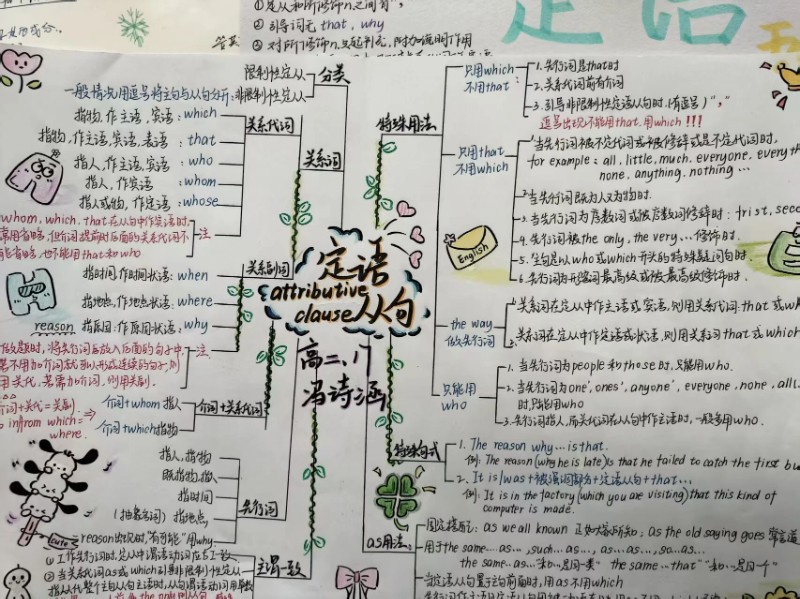 ① 定从和所修饰n.之间有","
② 引导词无 that, why
③ 对所修饰n.只起补充,附加说明作用
定语
限制性定从
一般情况用逗号将主句与从句分开:非限制性定从
分类
关系词
关系代词
指物,作主语,宾语:which
指物,作主语,宾语,表语:that
指人,作主语,宾语:who
指人,作宾语:whom
指人或物,作定语:whose
whom, which. that在从句中作宾语时,
常用省略,但介词提前时后面的关系代词不
能省略,也不能用that和who
注
关系副词
指时间,作时间状语:when
指地点,作地点状语:where
reason 指原因,作原因状语:why
做题时,将先行词后放入后面的句子中,
若不用加介词就可以形成连续的句子,则
用关代,若需加介词,则用关副.
注
介词+关代=关副.
in/from which=
where.
介词+关系代词
介词+whom 指人
介词+which指物
先行词
指人,指物
既指物,指人
指时间
(抽象名词)指地点,
reason出现时,"有可能"用why
cute
主谓一致
① 作先行词时,定从中谓语动词在与工一致
② 当关系代词as或which引非限制性定从
指从代整个主句从句主语时,从句谓语动词用单数
定语
attributive
clause 从句
高二、八
冯诗涵
特殊用法
只用which
不用that:
1.先行词是that时
2.关系代词前有介词
3.引导非限制性定语从句时.(有逗号)","
逗号出现不能用that.用which!!!
只用that
不用which
1.当先行词被不定代词或被修饰或是不定代词时,
for example: all, little, much. everyone, every
none, anything, nothing …
2.当先行词既为人又为物时.
3.当先行词为序数词或被序数词修辞时: frist, sec
4.先行词被the only, the very…修饰时.
5.主句是以who或which开头的特殊疑问句时.
6.先行词为形容词最高级或被最高级修饰时.
English
the way
做先行词
1.关系词在定从中作主语或宾语,则用关系代词:that或w
2.关系词在定从中作定语或状语,则用关系词that或which
只能用
who
1.当先行词为people和those时,只能用who.
2.当先行词为one', ones', anyone', everyone, none, all
时,只能用who
3.先行词指人,而关代词在从句中作主语时,一般多用who.
特殊句式
1. The reason why…is that.
例: The reason (why he is late) is that he failed to catch the first bu
2. It is/was+被强调部分+定语从句+that…
例: It is in the factory (which you are visiting) that this kind of
computer is made.
as用法:
固定搭配: as we all known 正如大家所知; as the old saying goes 常言道
用于the same…as…, such…as…, as…as…, so…as…
the same…as…"和…是同一类" the same…that "和…是同一个"
当定语从句置于主句前面时,用as不用which